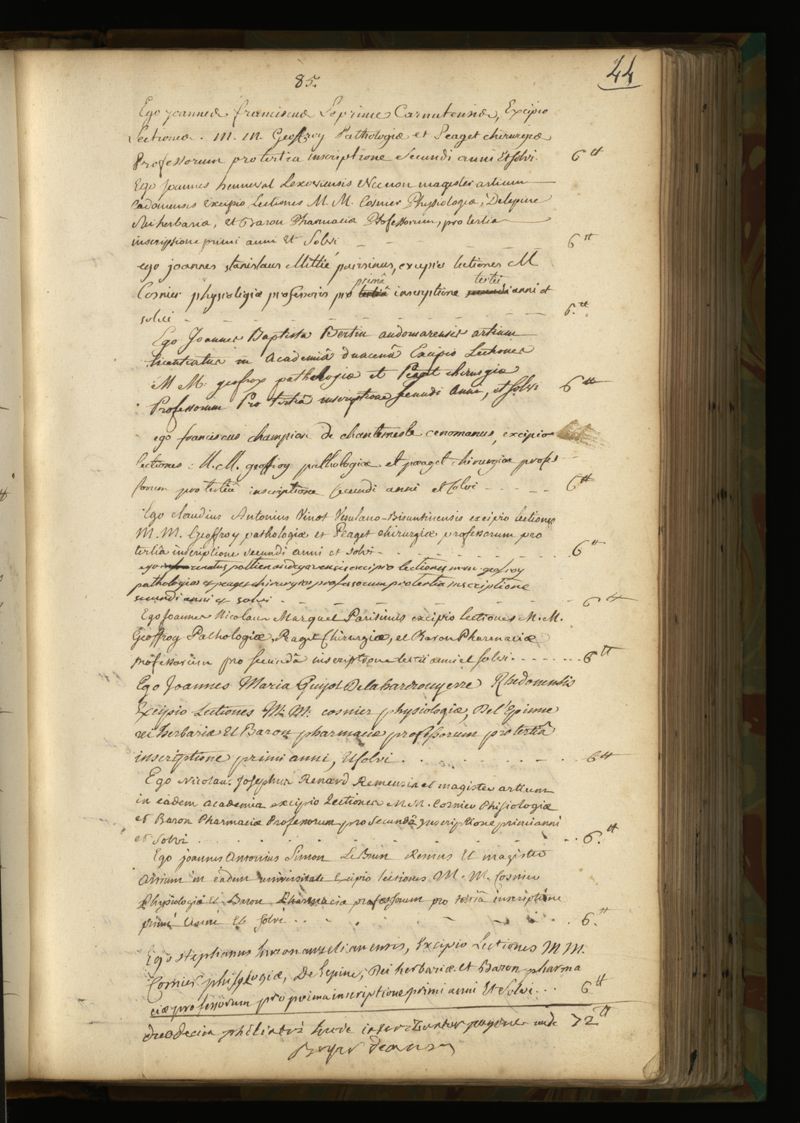 85.
44
Ego joannes franciscus Leprince Carnutensis, Excipio
Lectiones. M. M. Geoffroy Pathologiæ et Peaget chirurgiæ
Professorum pro tertia inscriptione secundi anni Et solvi. 6 ₶
Ego Joannes hunneval Lexoviensis Nec non magister artium
Cadomensis Excipio Lectiones M. M. Cosnier Physiologiæ, Delepine
Rei herbariæ, et Baron Pharmaciæ Professorum, pro tertia
inscriptione primi anni Et Solvi 6 ₶
ego joannes stanislaus Mittié parisinus, excipio lectiones M
Cosnier physiologiæ professoris pro tertiâ primâ inscriptione secundi tertii anni et
solvi 6. ₶
Ego Joannes Baptista Bertin audomarensis artium
licentiatus in Academiâ duacenâ Excipio Lectiones
M M. geoffroy pathologiæ et Peaget chirurgiæ
Professorum Pro tertiâ inscriptione secundi Anni, et solvi 6 ₶
ego franciscus champion De chantemesle cenomanus, excipio
lectiones: M. M. geoffroy pathologiæ et peaget chirurgiæ profes
sorum pro tertiâ inscriptione secundi anni et solvi 6 ₶
Ego Claudius Antonius Vinot Vesulano-Bisuntinensis excipio lectiones
M. M. Geoffroy pathologiæ et Peaget chirurgiæ professorum pro
tertia inscriptione secundi anni et solvi 6 ₶
ego renatus excipio lectiones mm. geofroy
pathologiæ et peaget chirurgiæ professorum pro tertia inscriptione
secundi anni et solvi 6 ₶
Ego Joannes Nicolaus Marquet Parisinus excipio lectiones M. M.
Geoffroy Pathologiæ, Peaget Chirurgiæ, et Baron Pharmaciæ
professorum pro secundâ inscriptione tertii anni et solvi 6 ₶
Ego Joannes Maria Guyot Rhedonensis
Excipio Lectiones M. M. cosnier physiologiæ, Del'Epinne
rei herbariæ Et Baron pharmaciæ professorum pro tertiâ
inscriptione primi anni, Et solvi 6 ₶
Ego Nicolaus Josephus Renard Remensis et magister artium
in eadem academia excipio Lectiones M. M. Cosnier Phisiologiæ
et Baron Pharmaciæ Professorum pro Secundâ inscriptione primi anni
et Solvi 6. ₶
Ego joannes Antonius Simon Le Brun Remus Et magister
Artium in eadem universitate excipio lectiones M. M. Cosnier
Physiologiæ et Baron Pharmaciæ professorum pro tertiâ inscriptione
primi Anni Et Solvi 6. ₶
Ego stephanus aurelianensis, Excipio Lectiones M M.
Cosnier phisologiæ, De lepine, Rei herbariæ et Baron pharma
ciæ professorum pro prima inscriptione primi anni Et Solvi 6 ₶
duodecim philiatri 72 ₶